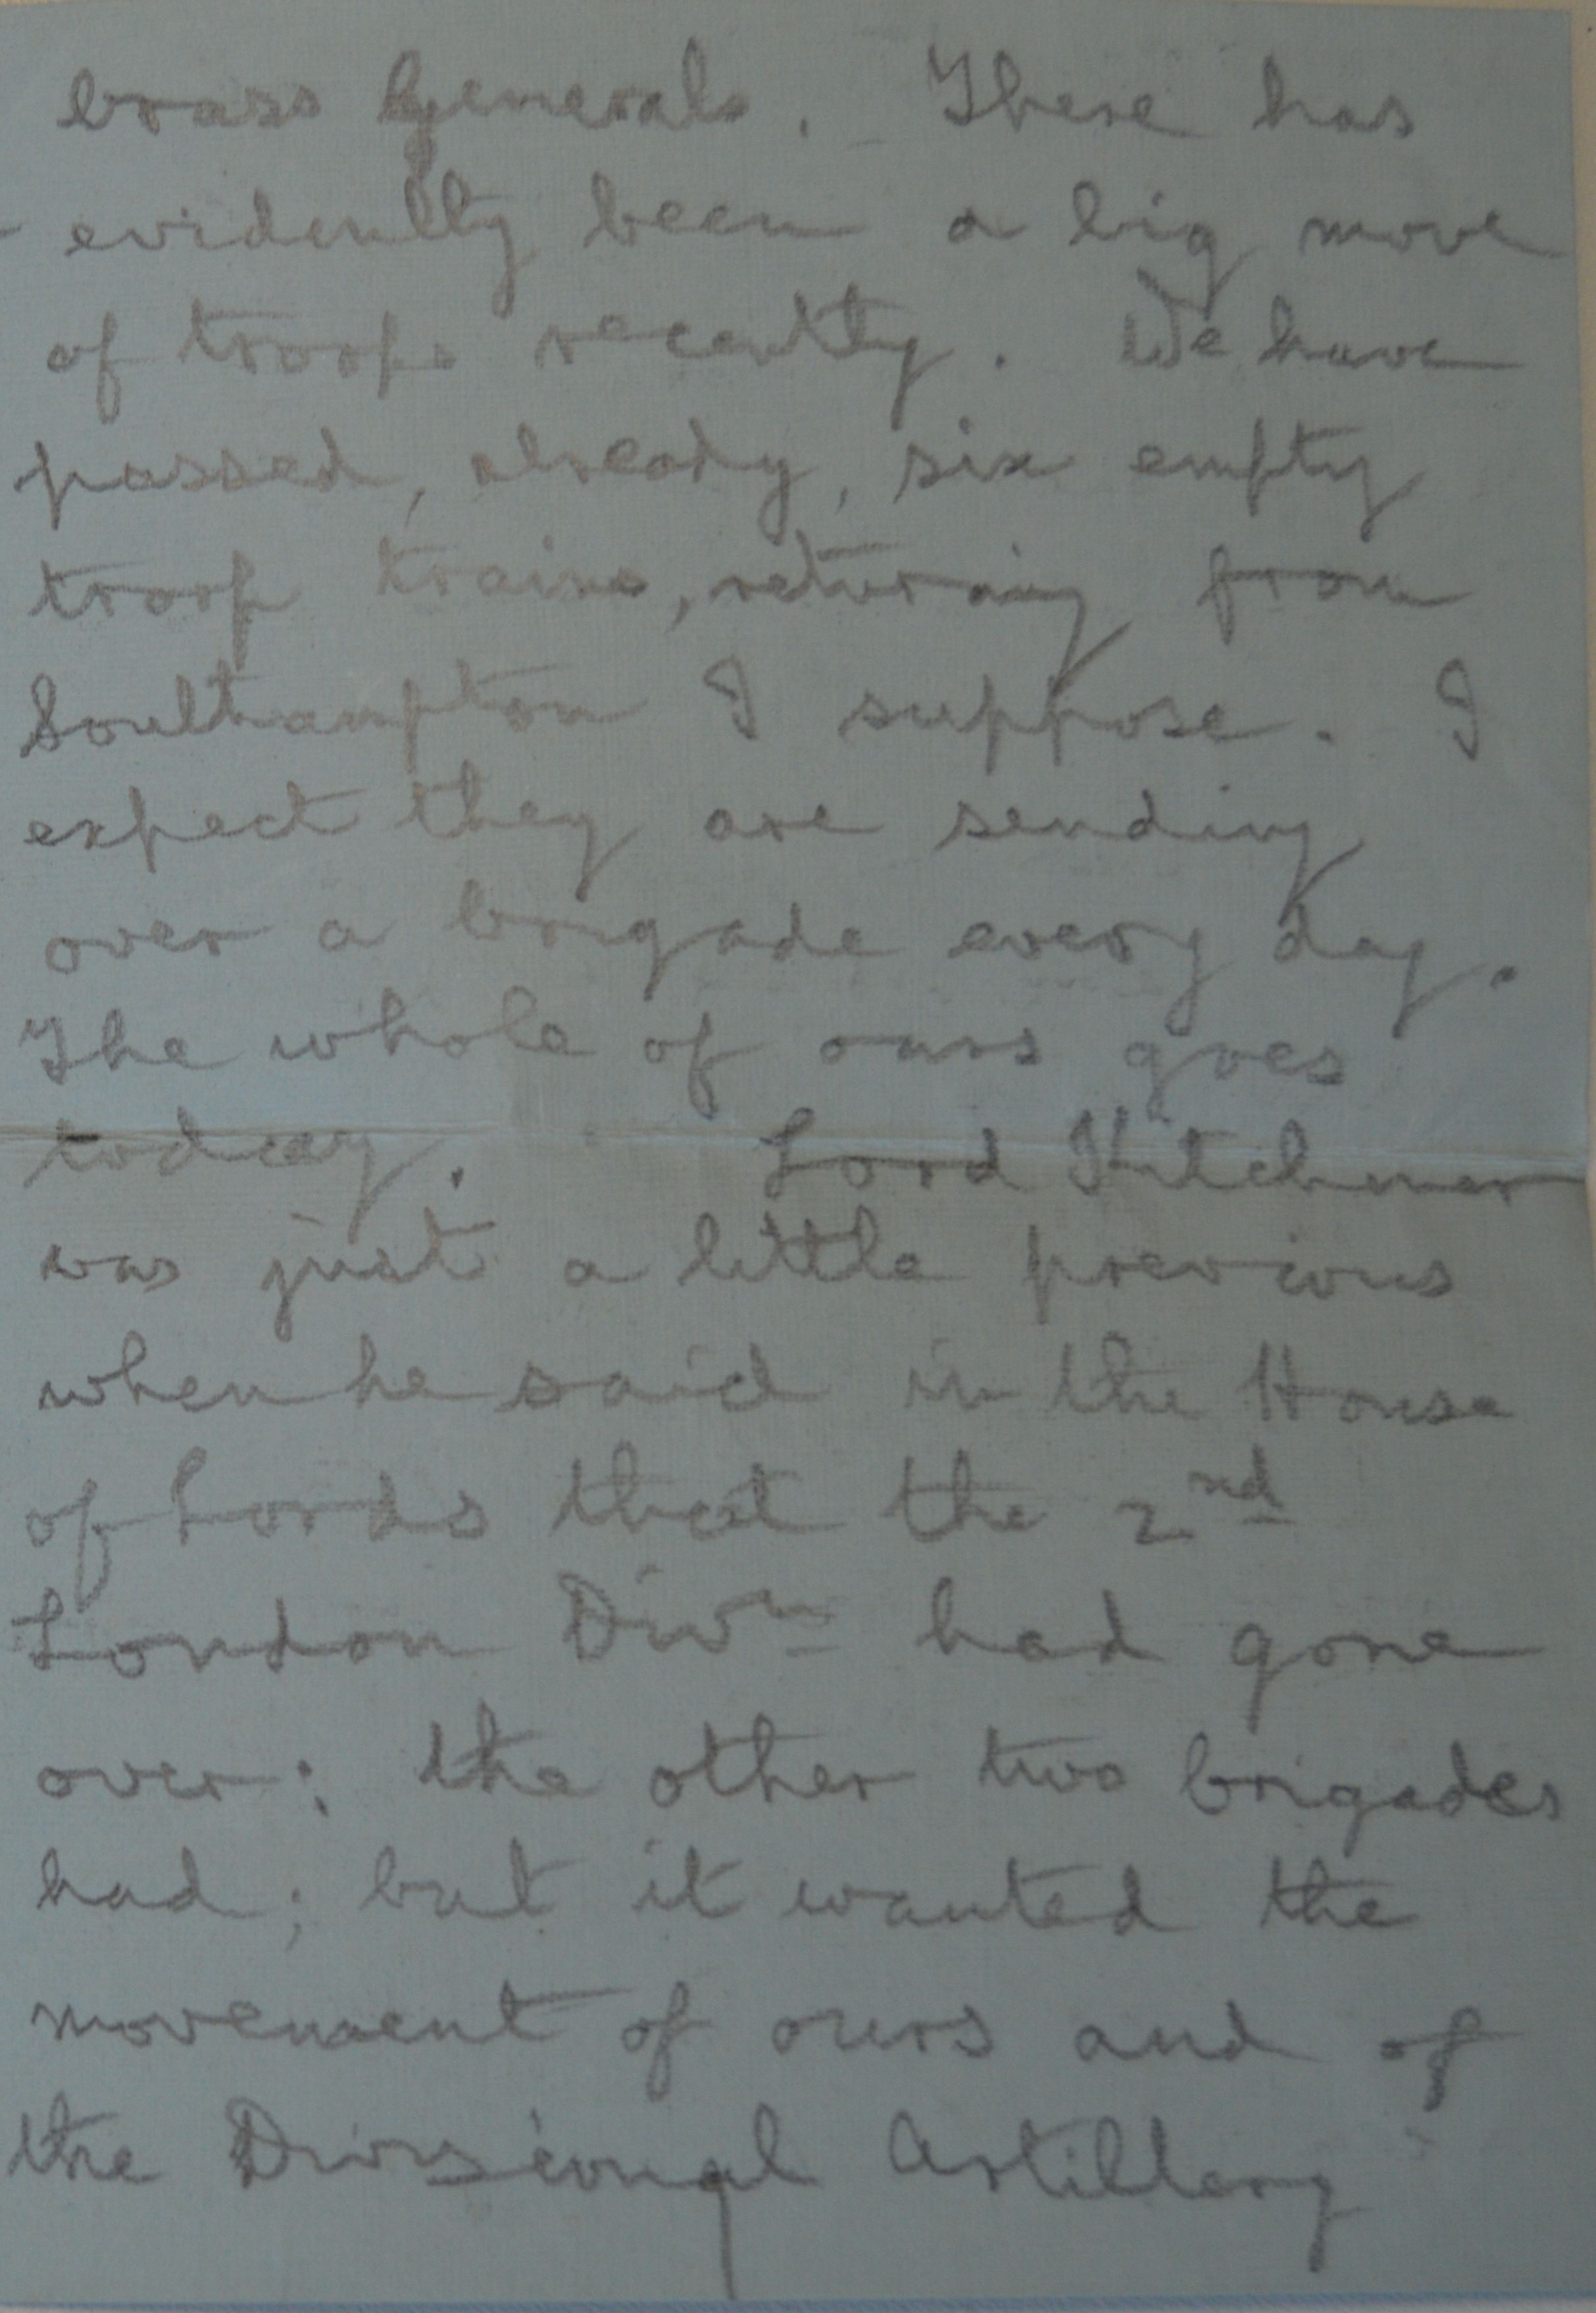 brass Generals. There has
evidently been a big move
of troops recently. We have
passed, already, six empty
troop trains, returning from
Southampton I suppose. I
expect they are sending
over a brigade every day.
The whole of ours goes
today. Lord Kitchener
was just a little previous
when he said in the House
of Lords that the 2nd
London Divn had gone
over: the other two brigades
had; but it wanted the
movement of ours and of
the Divisional Artillery